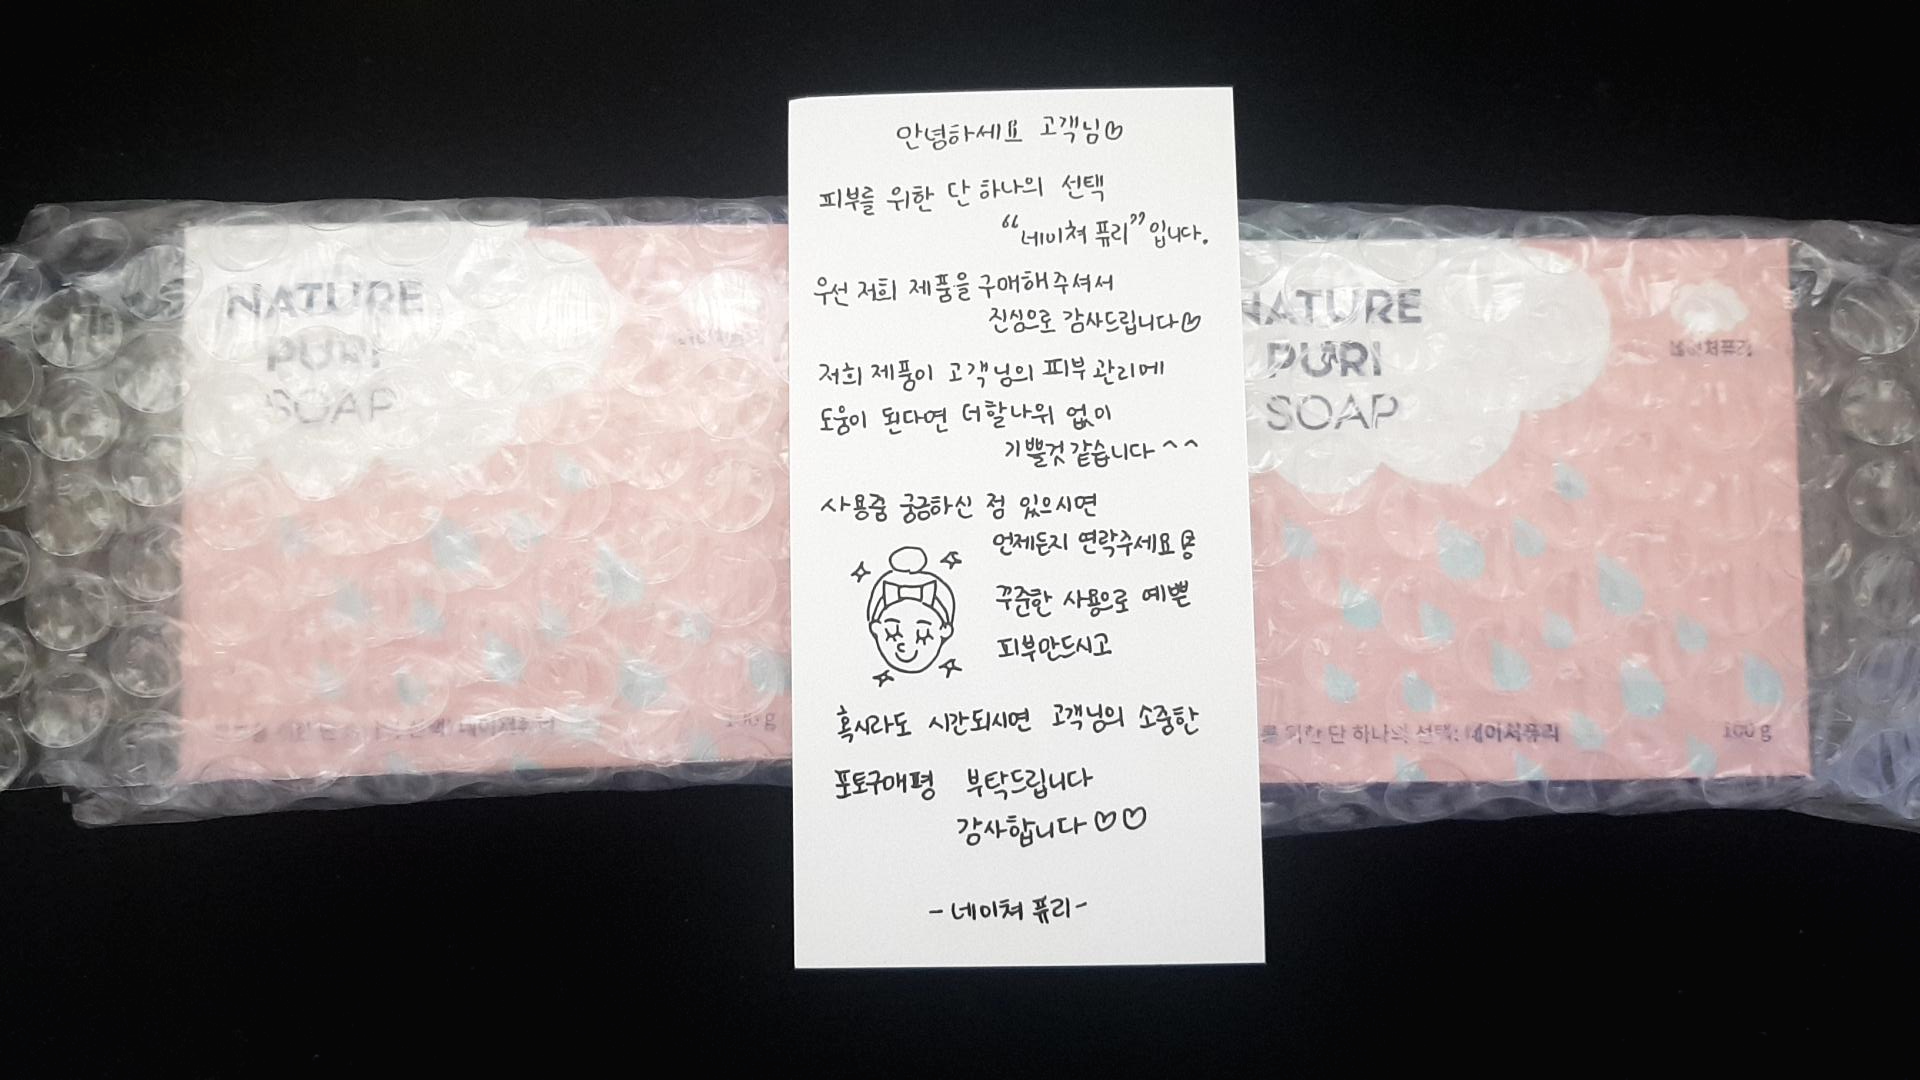 안녕하세요 고객님♡
피부를 위한 단 하나의 선택
“네이쳐 퓨리” 입니다.
우선 저희 제품을 구매해주셔서
진심으로 감사드립니다♡
저희 제품이 고객님의 피부 관리에
도움이 된다면 더할나위 없이
기쁠것 같습니다 ^ ^
사용중 궁금하신 점 있으시면
언제든지 연락주세요
꾸준한 사용으로 예쁜
피부만드시고
혹시라도 시간되시면 고객님의 소중한
포토구매평 부탁드립니다
감사합니다 ♡♡
- 네이쳐 퓨리 -
NATURE
PURI
SOAP
NATURE
PURI
SOAP
네이쳐퓨리
를 위한 단 하나의 선택; 네이쳐퓨리
100 g